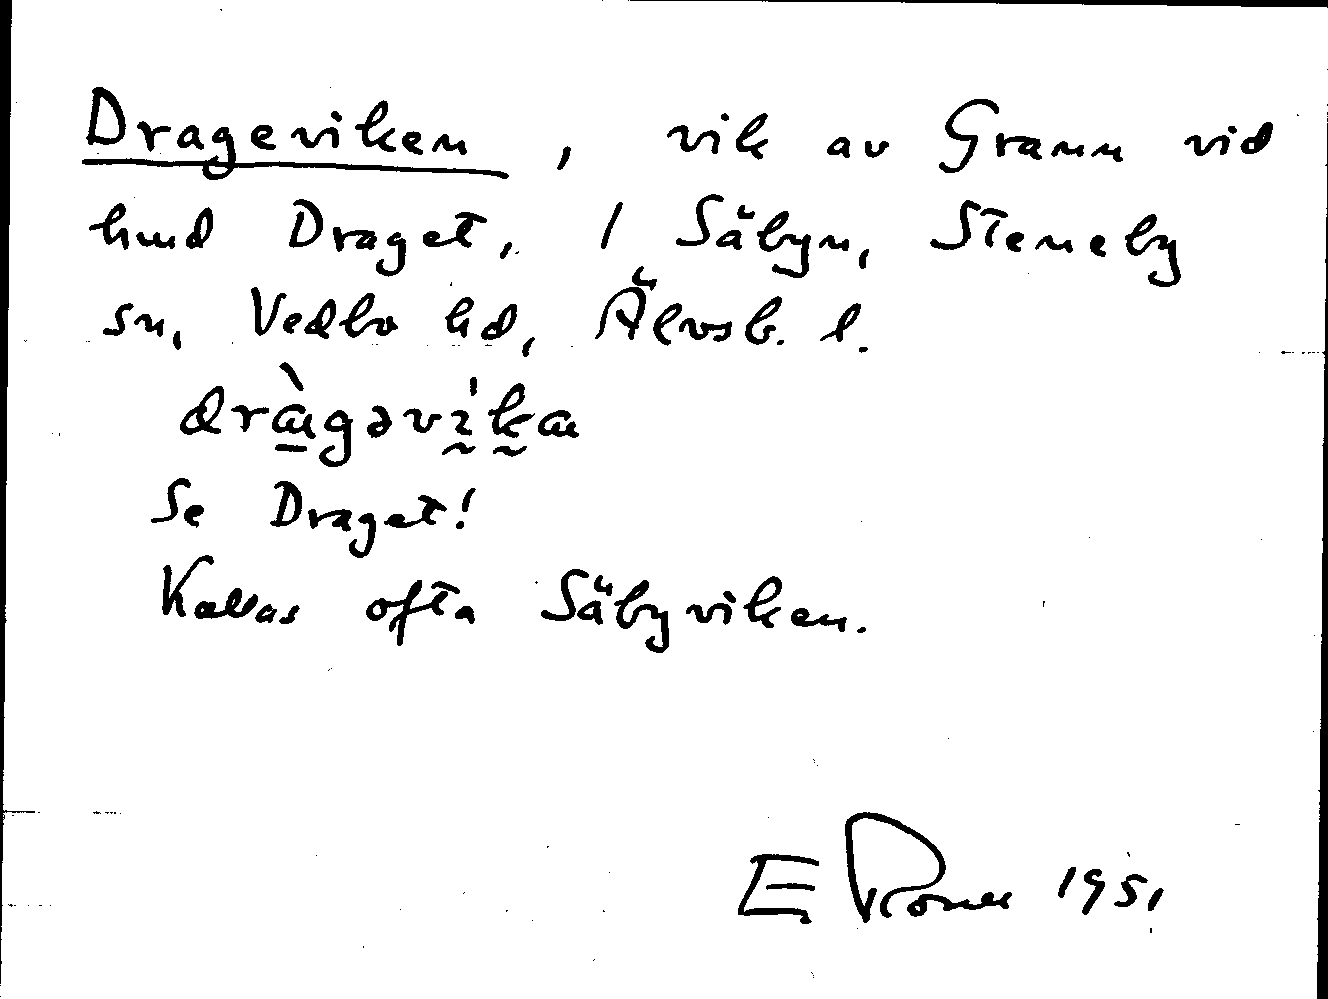 Drageviken, vik av Grann vid
hmd Draget, 1 Säbyn, Steneby
sn, Vedbo hd, Älvsb. l.
Se Draget!
Kallas ofta Säbyviken.
E 1951